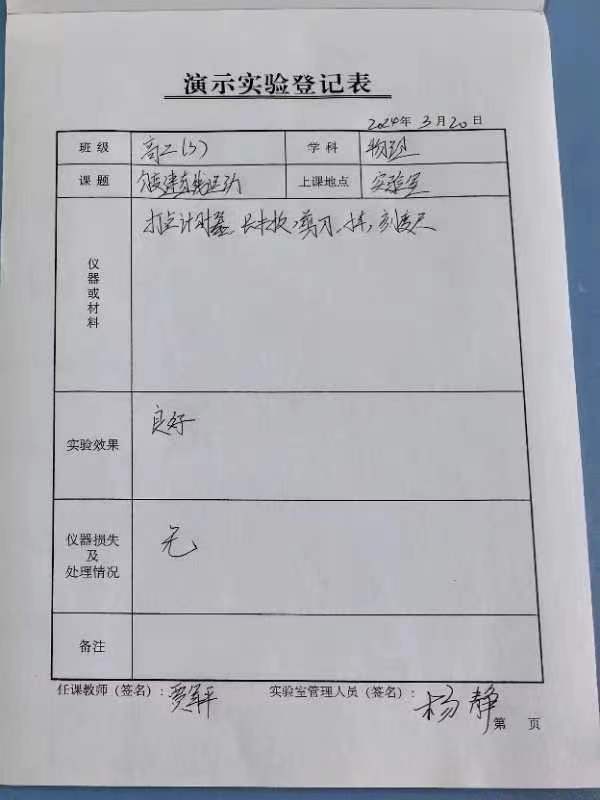 演示实验登记表
2024年3月20日
班级 高二(3) 学科 物理
课题 匀变速直线运动 上课地点 实验室
仪器或材料 打点计时器、长木板,剪刀、小车,刻度尺
实验效果 良好
仪器损失及处理情况 无
备注
任课教师(签名): 贾军平 实验室管理人员(签名): 杨静
第 页